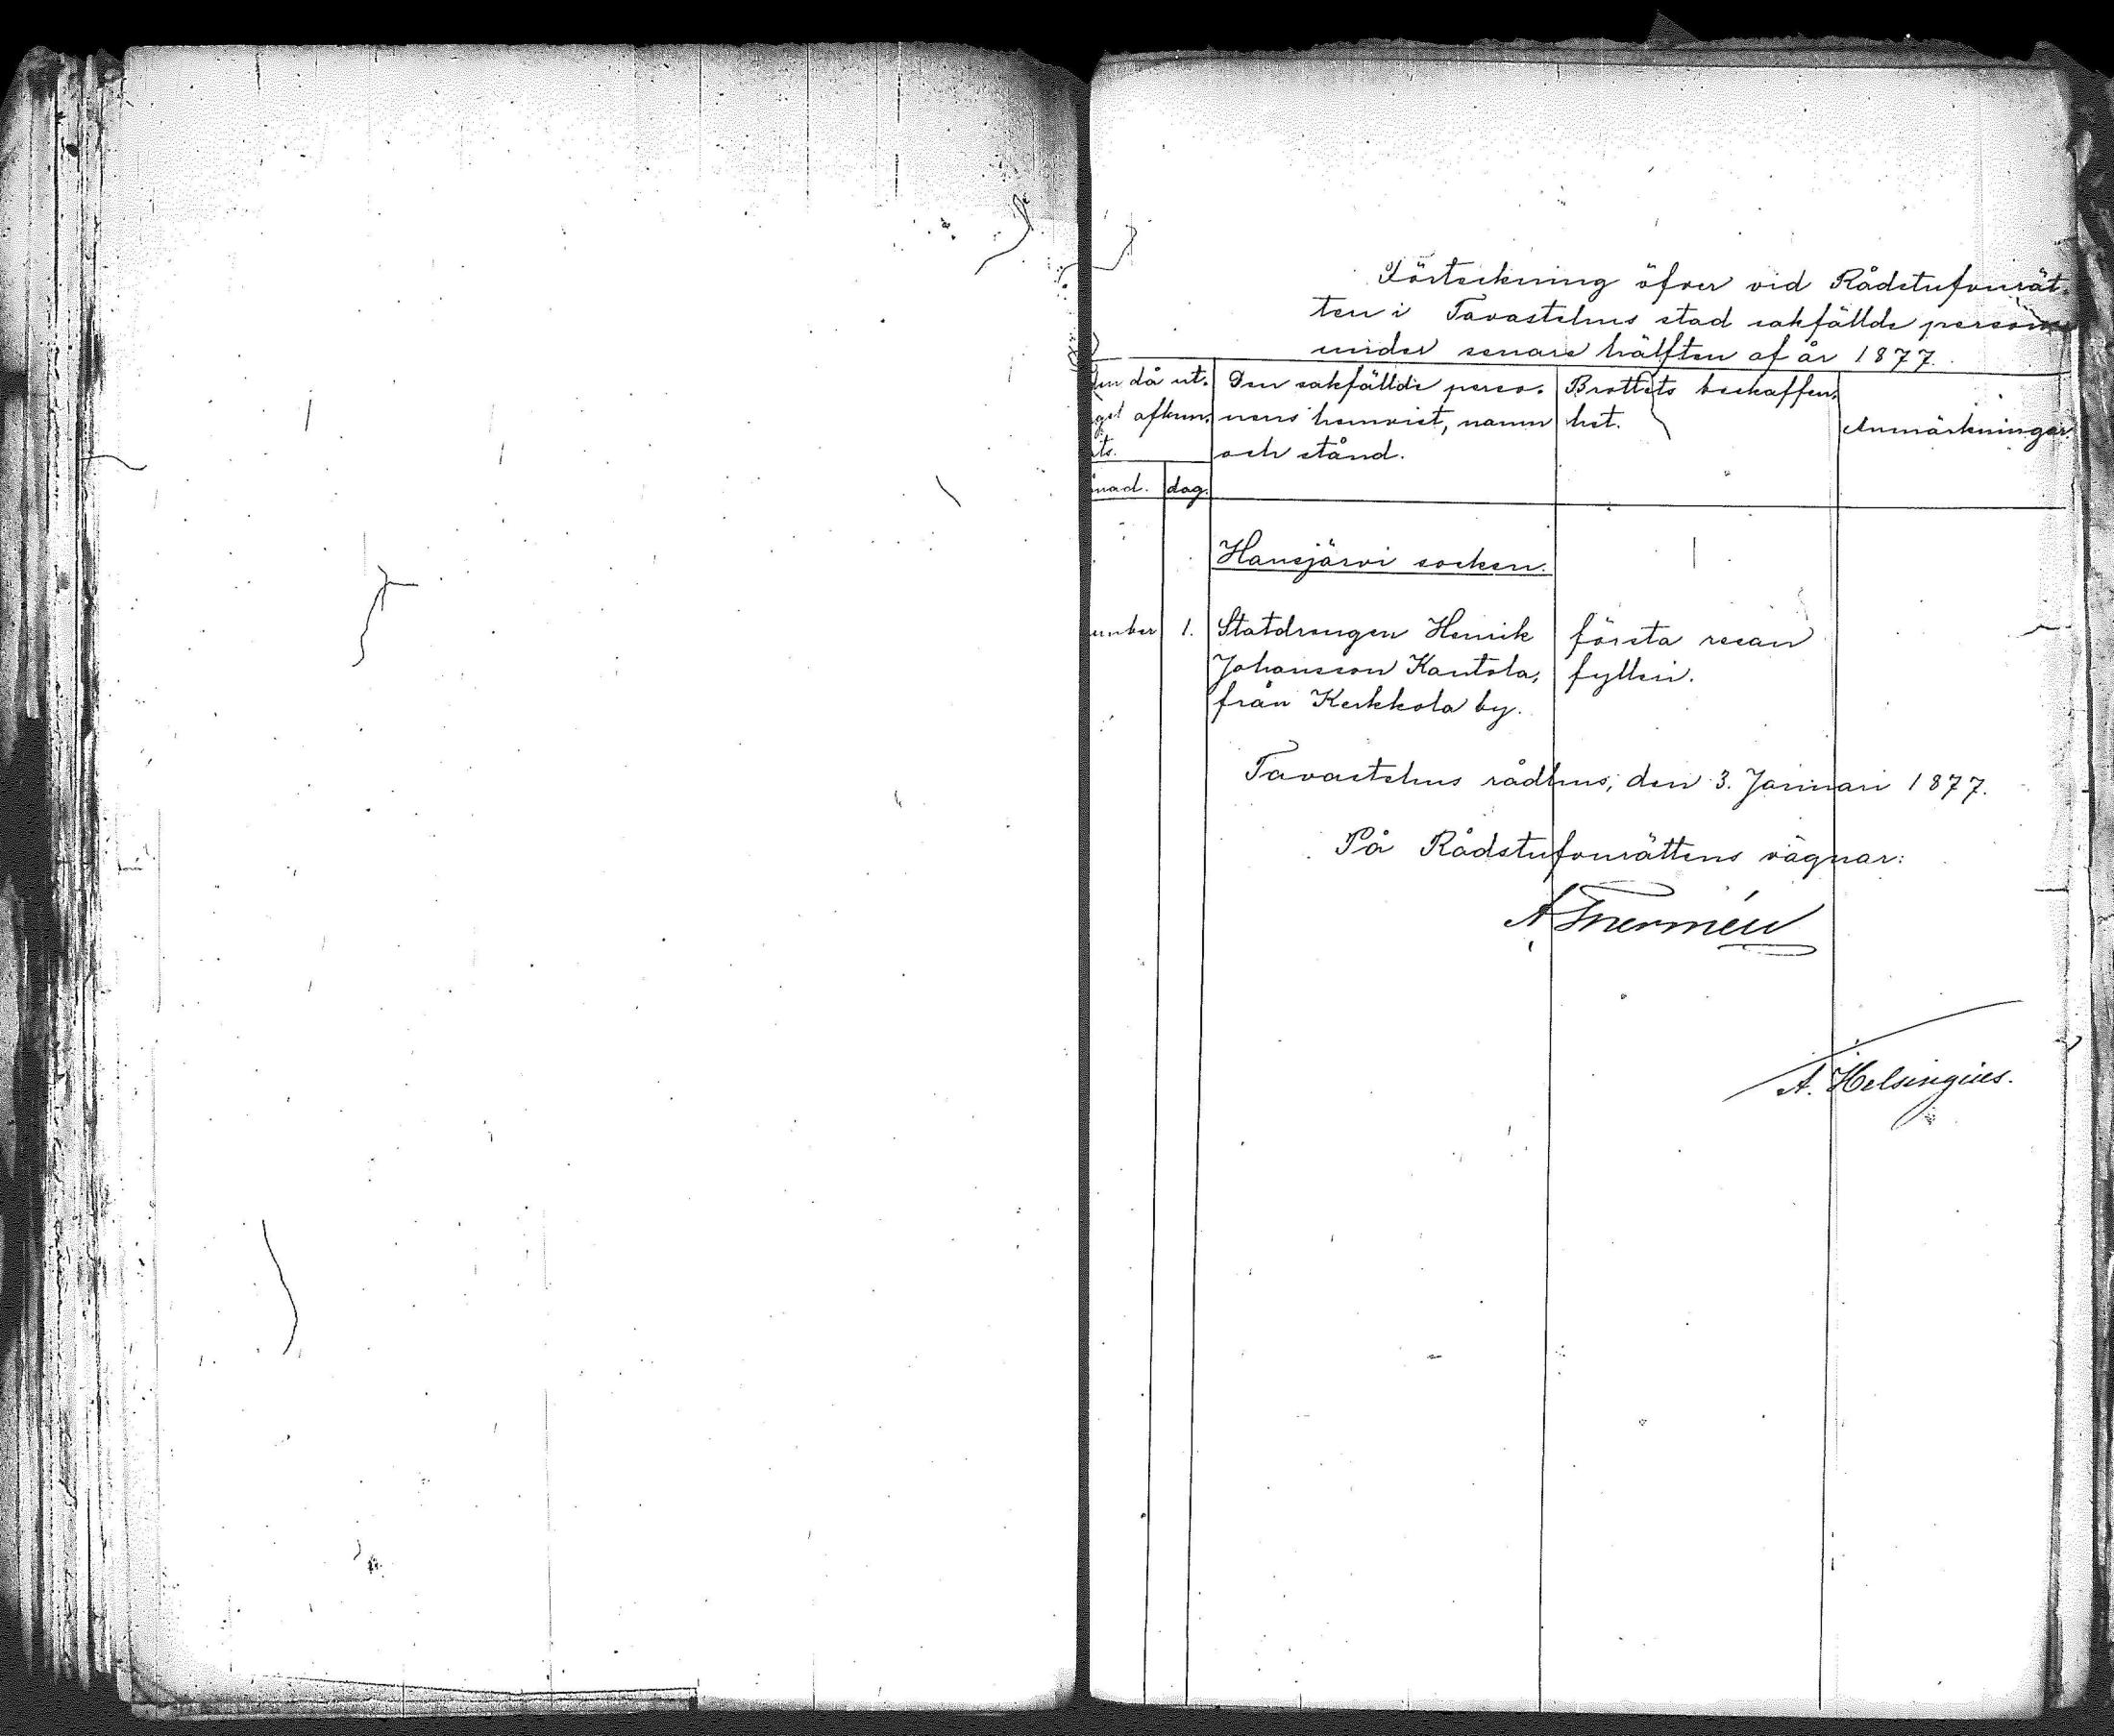 Förteckning öfver vid Rådstufvurät-
ten i Tavastehus stad sakfällde personer
under senare hälften af år 1877.
den då ut-
get afkun-
ats.
ånad. dag.
Den sakfällde perso-
nens hemvist, namn
och stånd.
Brottets beskaffen-
het.
Anmärkningar.
Hausjärvi socken.
ember 1.
Statdrengen Henrik
Johansson Kantola,
från Kerkkola by.
första resan
fylleri.
Tavastehus rådhus, den 3. Januari 1877.
På Rådstufvurättens vägnar:
A. Helsingius.